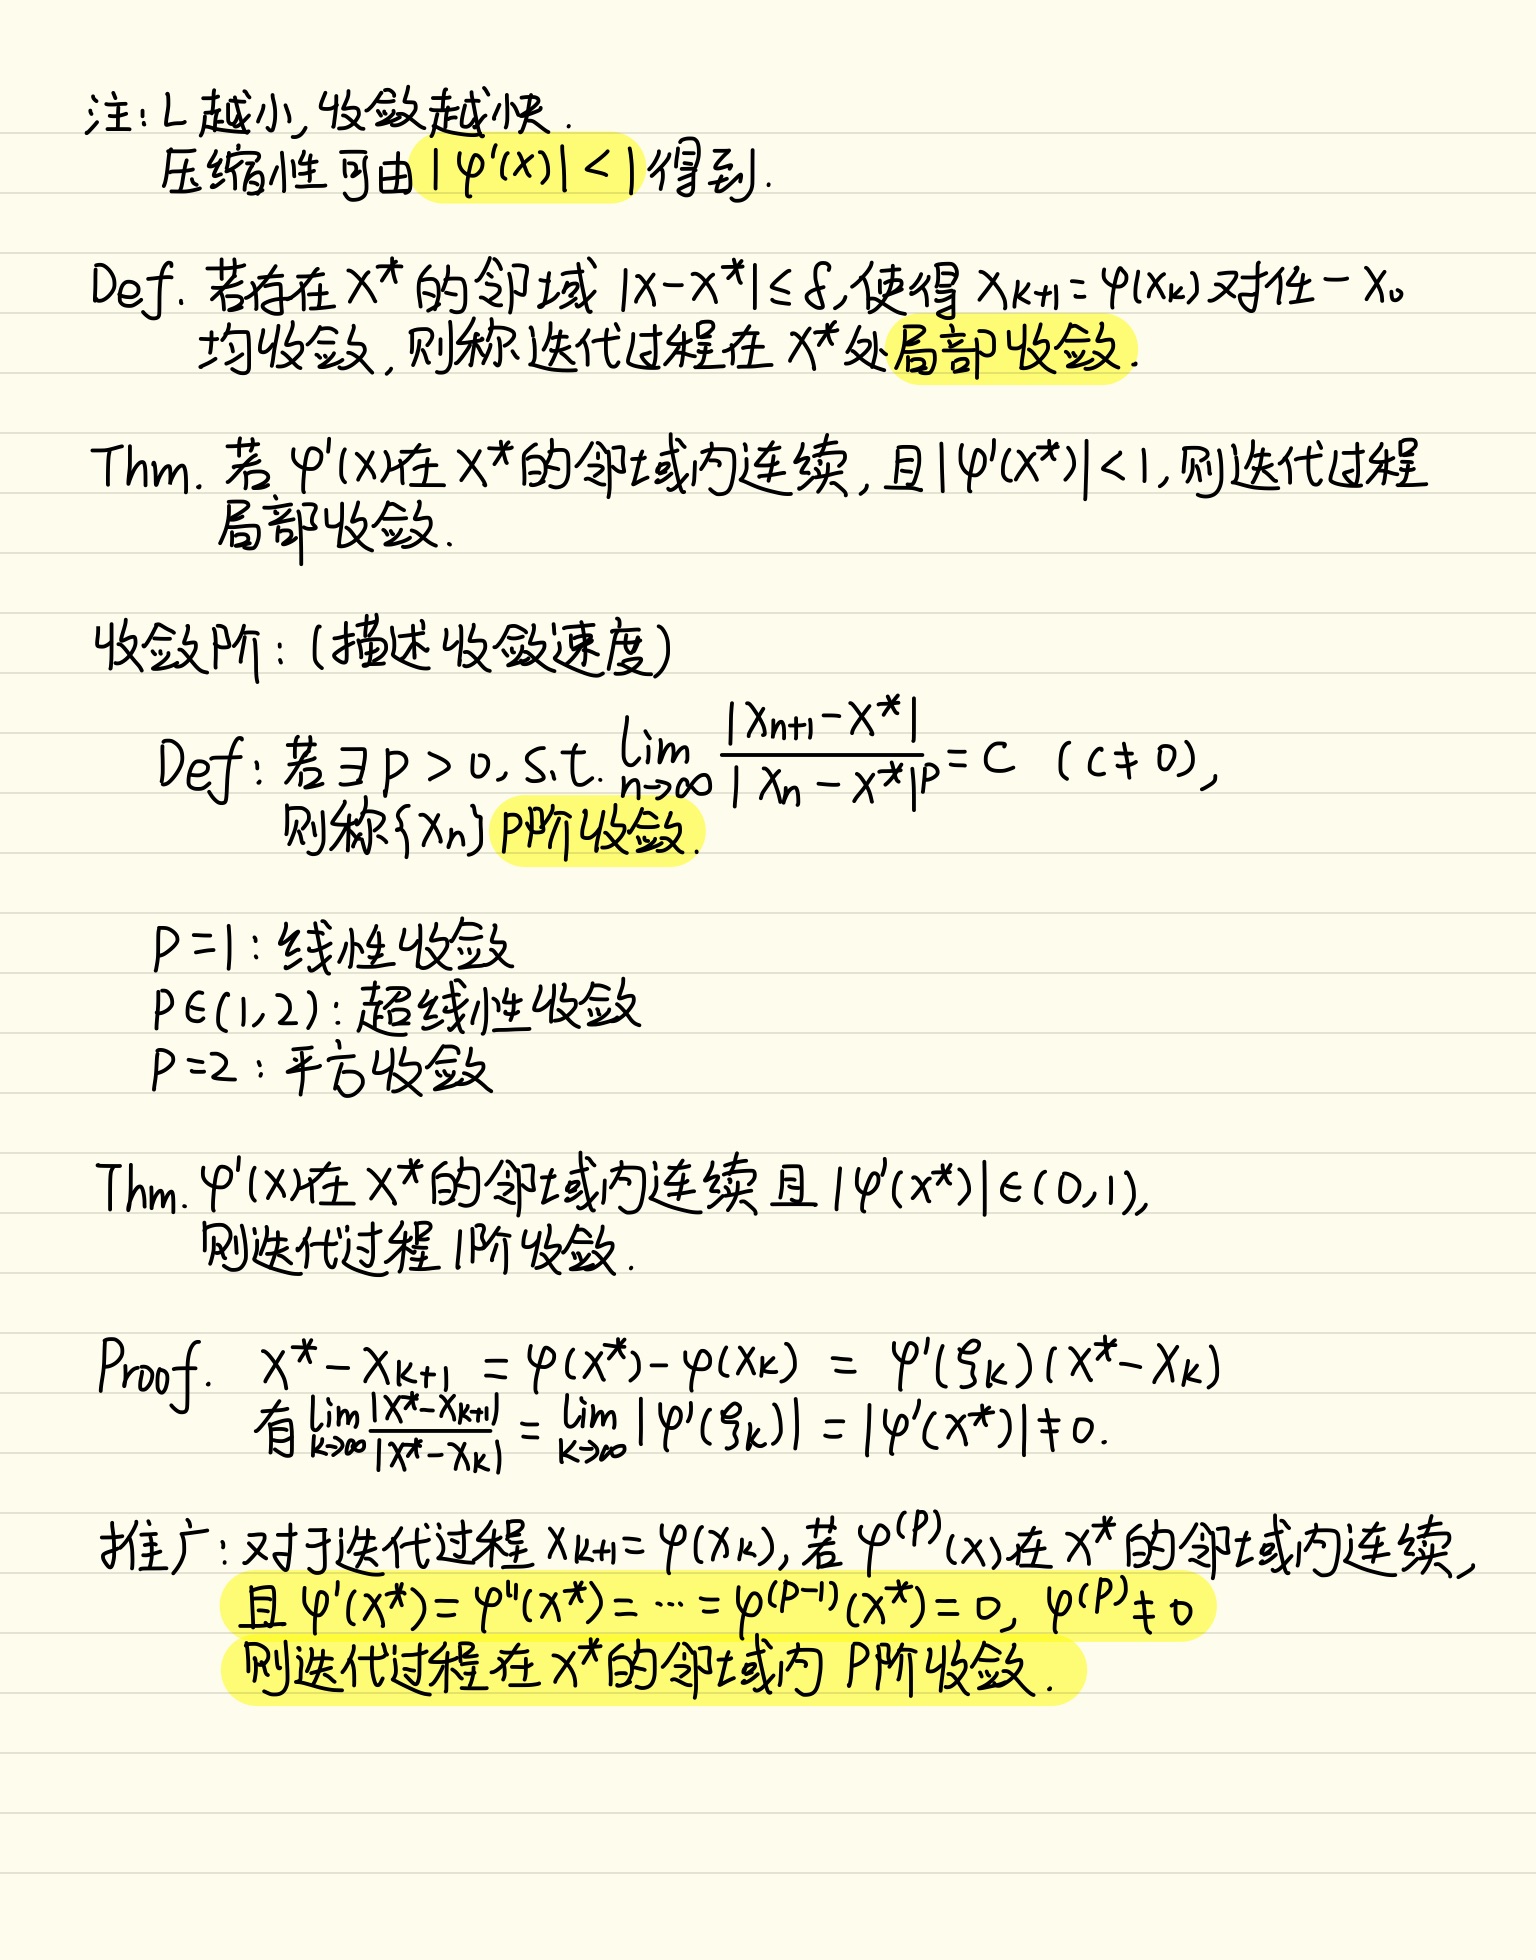 注: L越小, 收敛越快.
压缩性可由|φ'(x)|<1得到.
Def. 若存在x*的邻域 |x-x*|≤δ, 使得 x_{k+1}=φ(x_k) 对任一x₀
均收敛, 则称迭代过程在x*处局部收敛.
Thm. 若φ'(x)在x*的邻域内连续, 且|φ'(x*)|<1, 则迭代过程
局部收敛.
收敛阶: (描述收敛速度)
Def: 若∃p>0, s.t. lim_{n→∞} |x_{n+1}-x*| / |x_n-x*|^p = C (C≠0),
则称{x_n} P阶收敛.
P=1: 线性收敛
P∈(1,2): 超线性收敛
P=2: 平方收敛
Thm. φ'(x)在x*的邻域内连续且|φ'(x*)|∈(0,1),
则迭代过程1阶收敛.
Proof. x*-x_{k+1} = φ(x*)-φ(x_k) = φ'(ξ_k)(x*-x_k)
有 lim_{k→∞} |x*-x_{k+1}| / |x*-x_k| = lim_{k→∞} |φ'(ξ_k)| = |φ'(x*)|≠0.
推广: 对于迭代过程x_{k+1}=φ(x_k), 若φ^{(P)}(x)在x*的邻域内连续,
且φ'(x*)=φ''(x*)=…=φ^{(P-1)}(x*)=0, φ^{(P)}≠0
则迭代过程在x*的邻域内 P阶收敛.